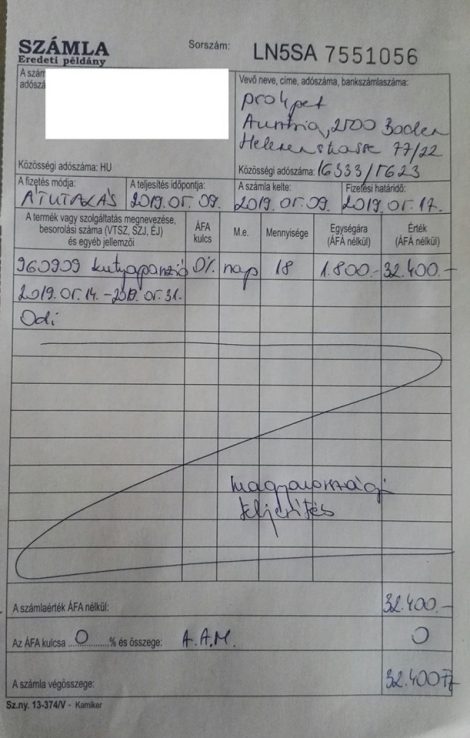 SZÁMLA
Eredeti példány
Sorszám: LN5SA 7551056
A szám
adószá
Vevő neve, címe, adószáma, bankszámlaszáma:
pro4pet
Austria, 2500 Baden
77/22
Közösségi adószáma: HU
Közösségi adószáma:
A fizetés módja: A teljesítés időpontja: A számla kelte: Fizetési határidő:
ÁTUTALÁS 2019.05.09. 2019.05.09. 2019.05.17.
A termék vagy szolgáltatás megnevezése, besorolási száma (VTSZ, SZJ, ÉJ) és egyéb jellemzői ÁFA kulcs M.e. Mennyisége Egységára (ÁFA nélkül) Érték (ÁFA nélkül)
960909 kutyapanzió 0% nap 18 1.800.- 32.400.-
2019.05.14.-2019.05.31.
Odi
magyarországi
teljesítés
A számlaérték ÁFA nélkül: 32.400.-
Az ÁFA kulcsa 0 % és összege: A.A.M. 0
A számla végösszege: 32.400 Ft
Sz.ny. 13-374/V - Kamiker